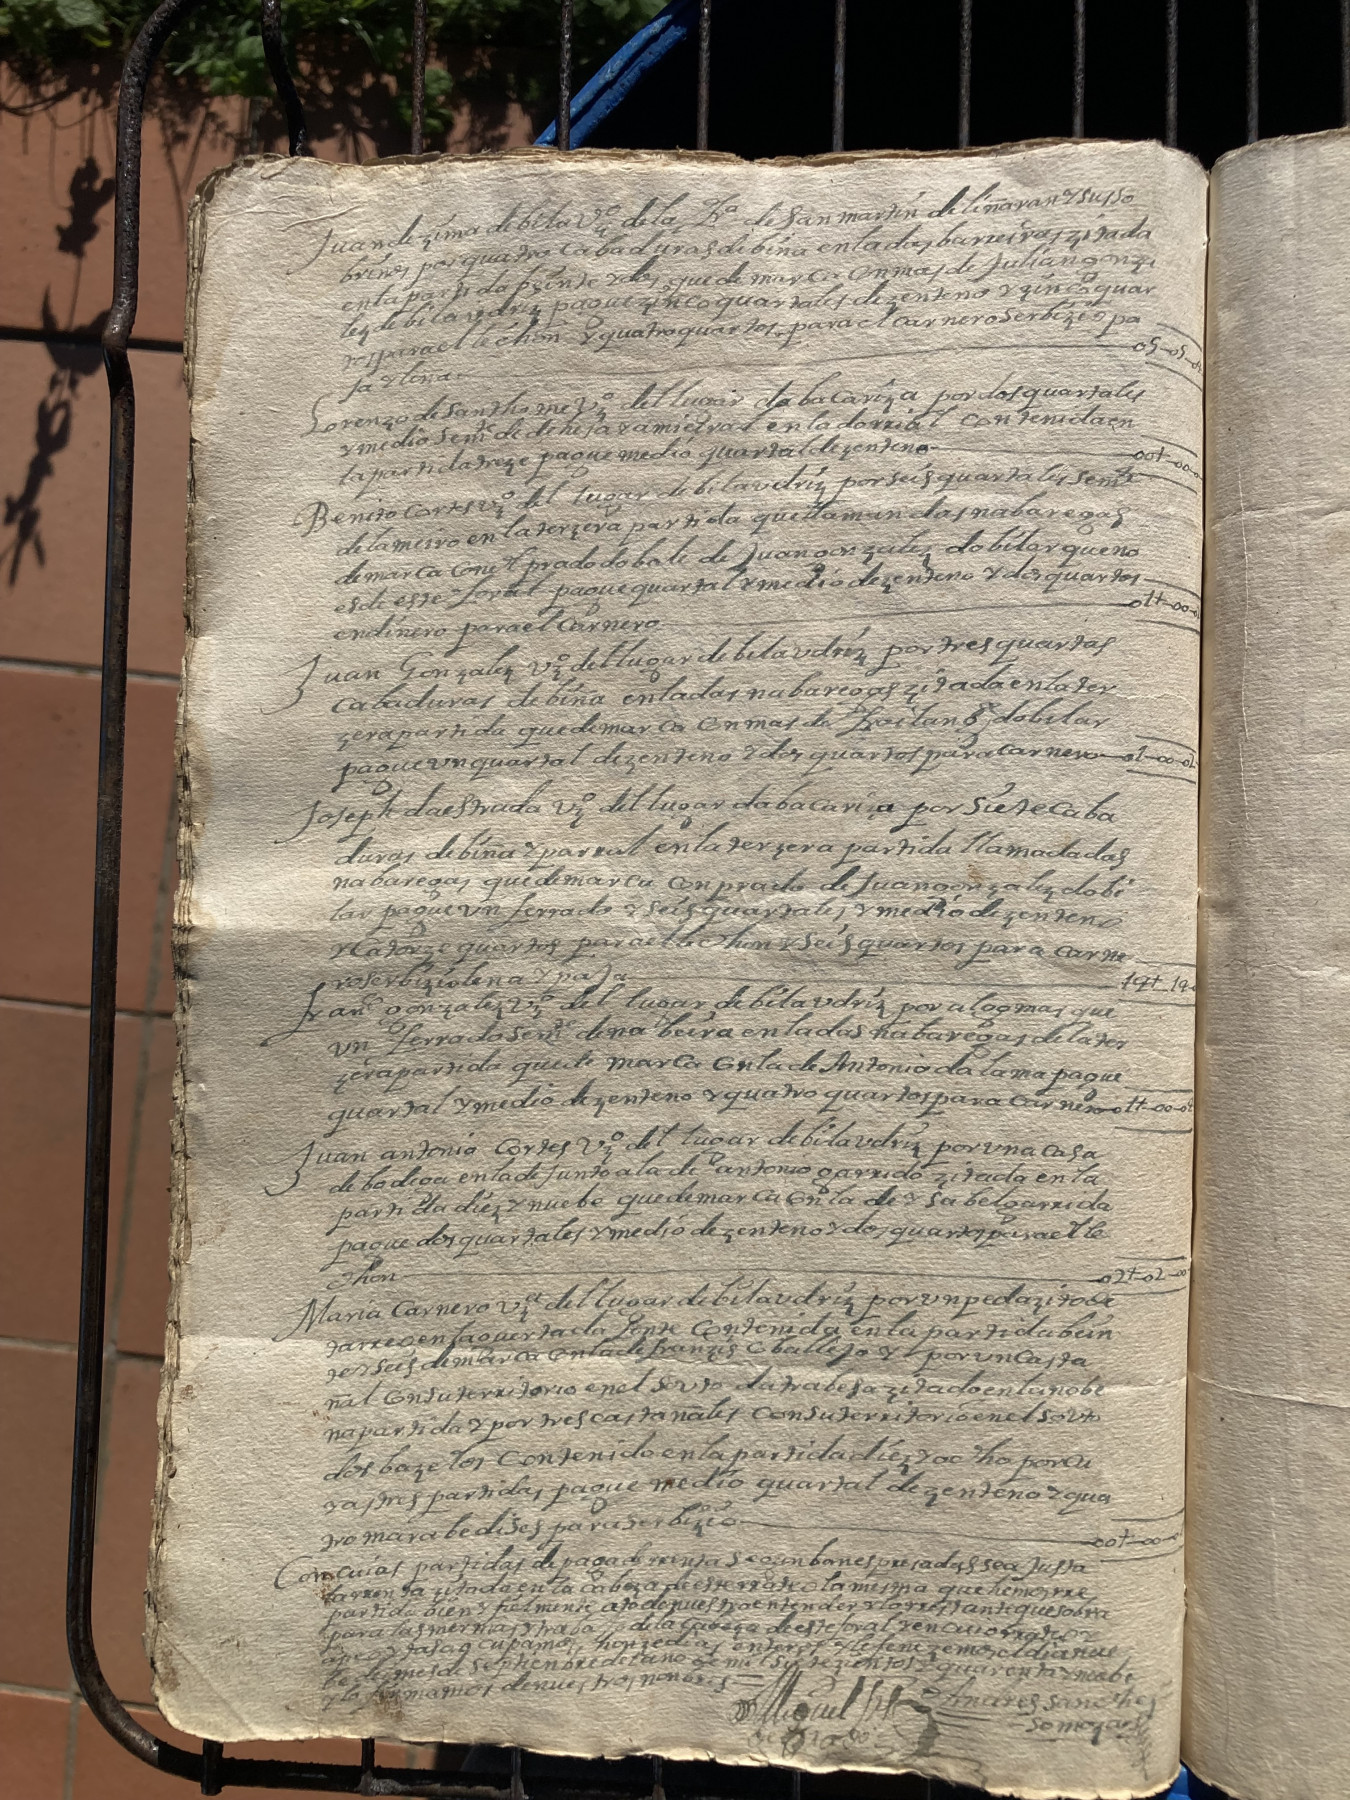 Juan de zima de bila Vº de la fª de San martin de liñaran y su so
brinos por quatro Cabaduras de biña en la das barreiras zitada
en la partida pente y dos que demarca Con mas de Julian gonza
lez de bilaudriz pague zinco quartales de zenteno y zinco quar
tos para el lechon y quatro quartos para el Carnero serbizeo pa
ja y lina
Lorenzo de Santhome Vº del lugar da bacariza por dos quartales
y medio semª de dehesa y amietrad en la dorrial Contenida en
la partida treze pague medio quartal de zenteno 00t-00-0
Benito Cortes Vº del lugar de bilaudriz por seis quartales semª
de lameiro en la terzera partida que llaman das nabaregas
demarca Con el prado do bale de Juan gonzalez do bilar que no
es de este foral pague quartal y medio de zenteno y dos quartos
en dinero para el Carnero 01t-00-0
Juan Gonzalez Vº del lugar de bilaudriz por tres quartas
Cabaduras de biña en la das nabaregas zitada en la ter
zera partida que demarca Con mas de froilan gz do bilar
pague un quartal de zenteno y dos quartos para Carnero 01-00-0
Joseph da estrada Vº del lugar da bacariza por Siete Caba
duras de biña y parral en la terzera partida llamada das
nabaregas que demarca Con prado de Juan gonzalez do bi
lar pague un ferrado y seis quartales y medio de zenteno
y Catorze quartos para el lechon y seis quartos para Carne
ro serbizio lena y paja 19t-19
franº gonzalez Vº del lugar de bilaudriz por algo mas que
un ferrado semª de nabeira en la das nabaregas de la ter
zera partida que demarca Con la de Antonio da lama pague
quartal y medio de zenteno y quatro quartos para Carnero 01t-00-0
Juan antonio Cortes Vº del lugar de bilaudriz por una Casa
de bodega en la de Junto a la de antonio garrido zitada en la
partida diez y nuebe que demarca Con la de ysabel garrida
pague dos quartales y medio de zenteno y dos quartos para el le
chon 02t-02-00
Maria Carnero Vª del lugar de bilaudriz por un pedazito de
tarreo en la querta da fonte Contenida en la partida bein
te y seis demarca Con la de franzisco ballejo y por un Casta
ñal Con su territorio en el Souto da trabesa zitado en la nobe
na partida y por tres castañales Con su territorio en el Souto
dos bazelos Contenido en la partida diez y ocho por Cu
yas tres partidas pague medio quartal de zenteno y qua
tro marabedises para serbizio 00t-00-0
Con cuias partidas de paga de renta segun ban espresadas sea Justa
la renta zitada en la Cabeza de este rrateo la misma que hemos rre
partido bien y fielmente a todo nuestro entender y lo rrestante que sobra
para las mermas y trabajo de la Cabeza de este foral y en cuio rrateo
apeo y tasa ocupamos honze dias enteros y le fenezemos el dia nue
be de mes de Septiembre del año de mil Setezientos y quarenta y nuebe
y lo firmamos de nuestros nombres
Miguel
Andres Sanches
Somoza